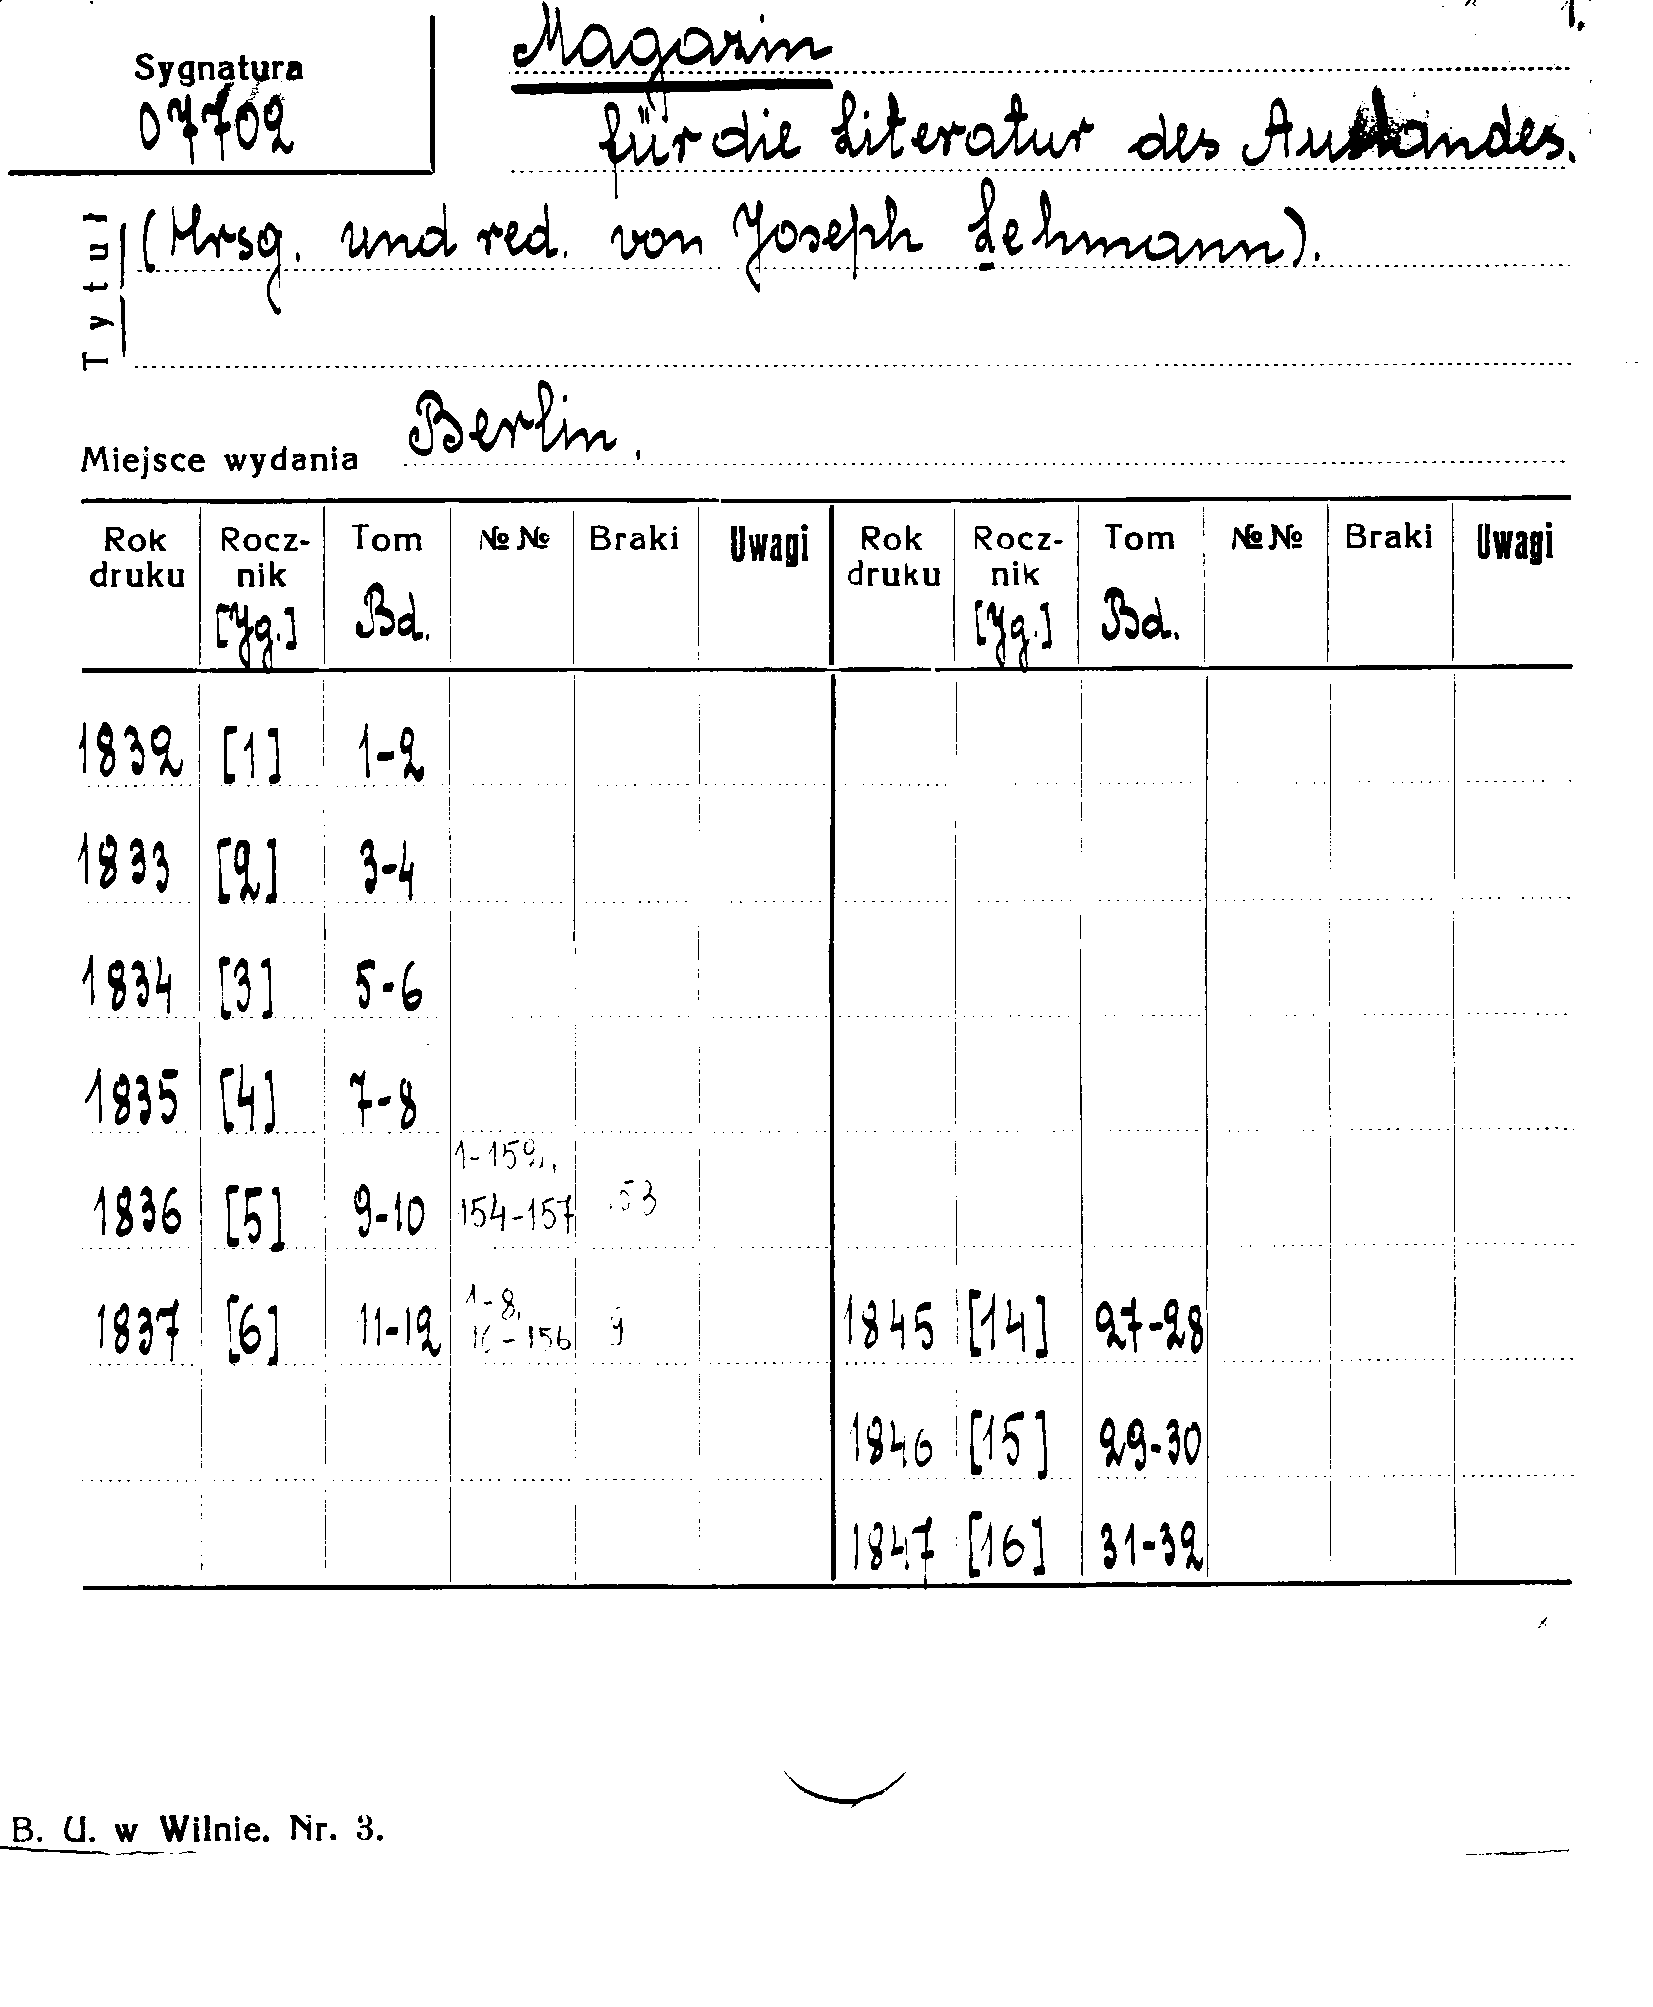 1.
Sygnatura
07702
Magazin
für die Literatur des Auslandes.
Tytuł
(Hrsg. und red. von Joseph Lehmann).
Miejsce wydania Berlin.
Rok druku Rocz-nik [Jg.] Tom Bd. №№ Braki Uwagi Rok druku Rocz-nik [Jg.] Tom Bd. №№ Braki Uwagi
1832 [1] 1-2
1833 [2] 3-4
1834 [3] 5-6
1835 [4] 7-8
1836 [5] 9-10 154-157
1837 [6] 11-12 1-8, 9 1845 [14] 27-28
1846 [15] 29-30
1847 [16] 31-32
B. U. w Wilnie. Nr. 3.